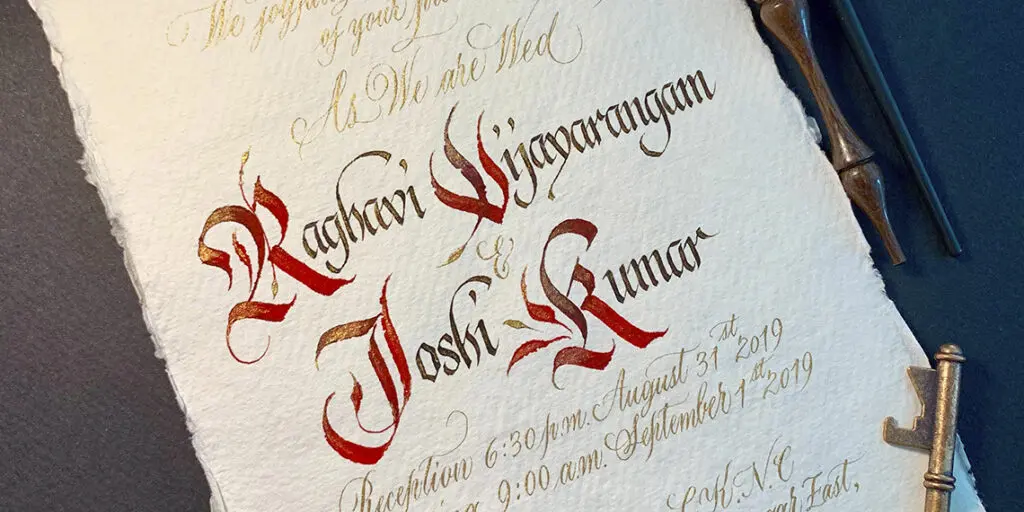 We joyfully
of your
As We are Wed
Raghavi Vijayarangam
&
Joshi Kumar
Reception 6:30 p.m. August 31st 2019
9:00 a.m. September 1st 2019
East,